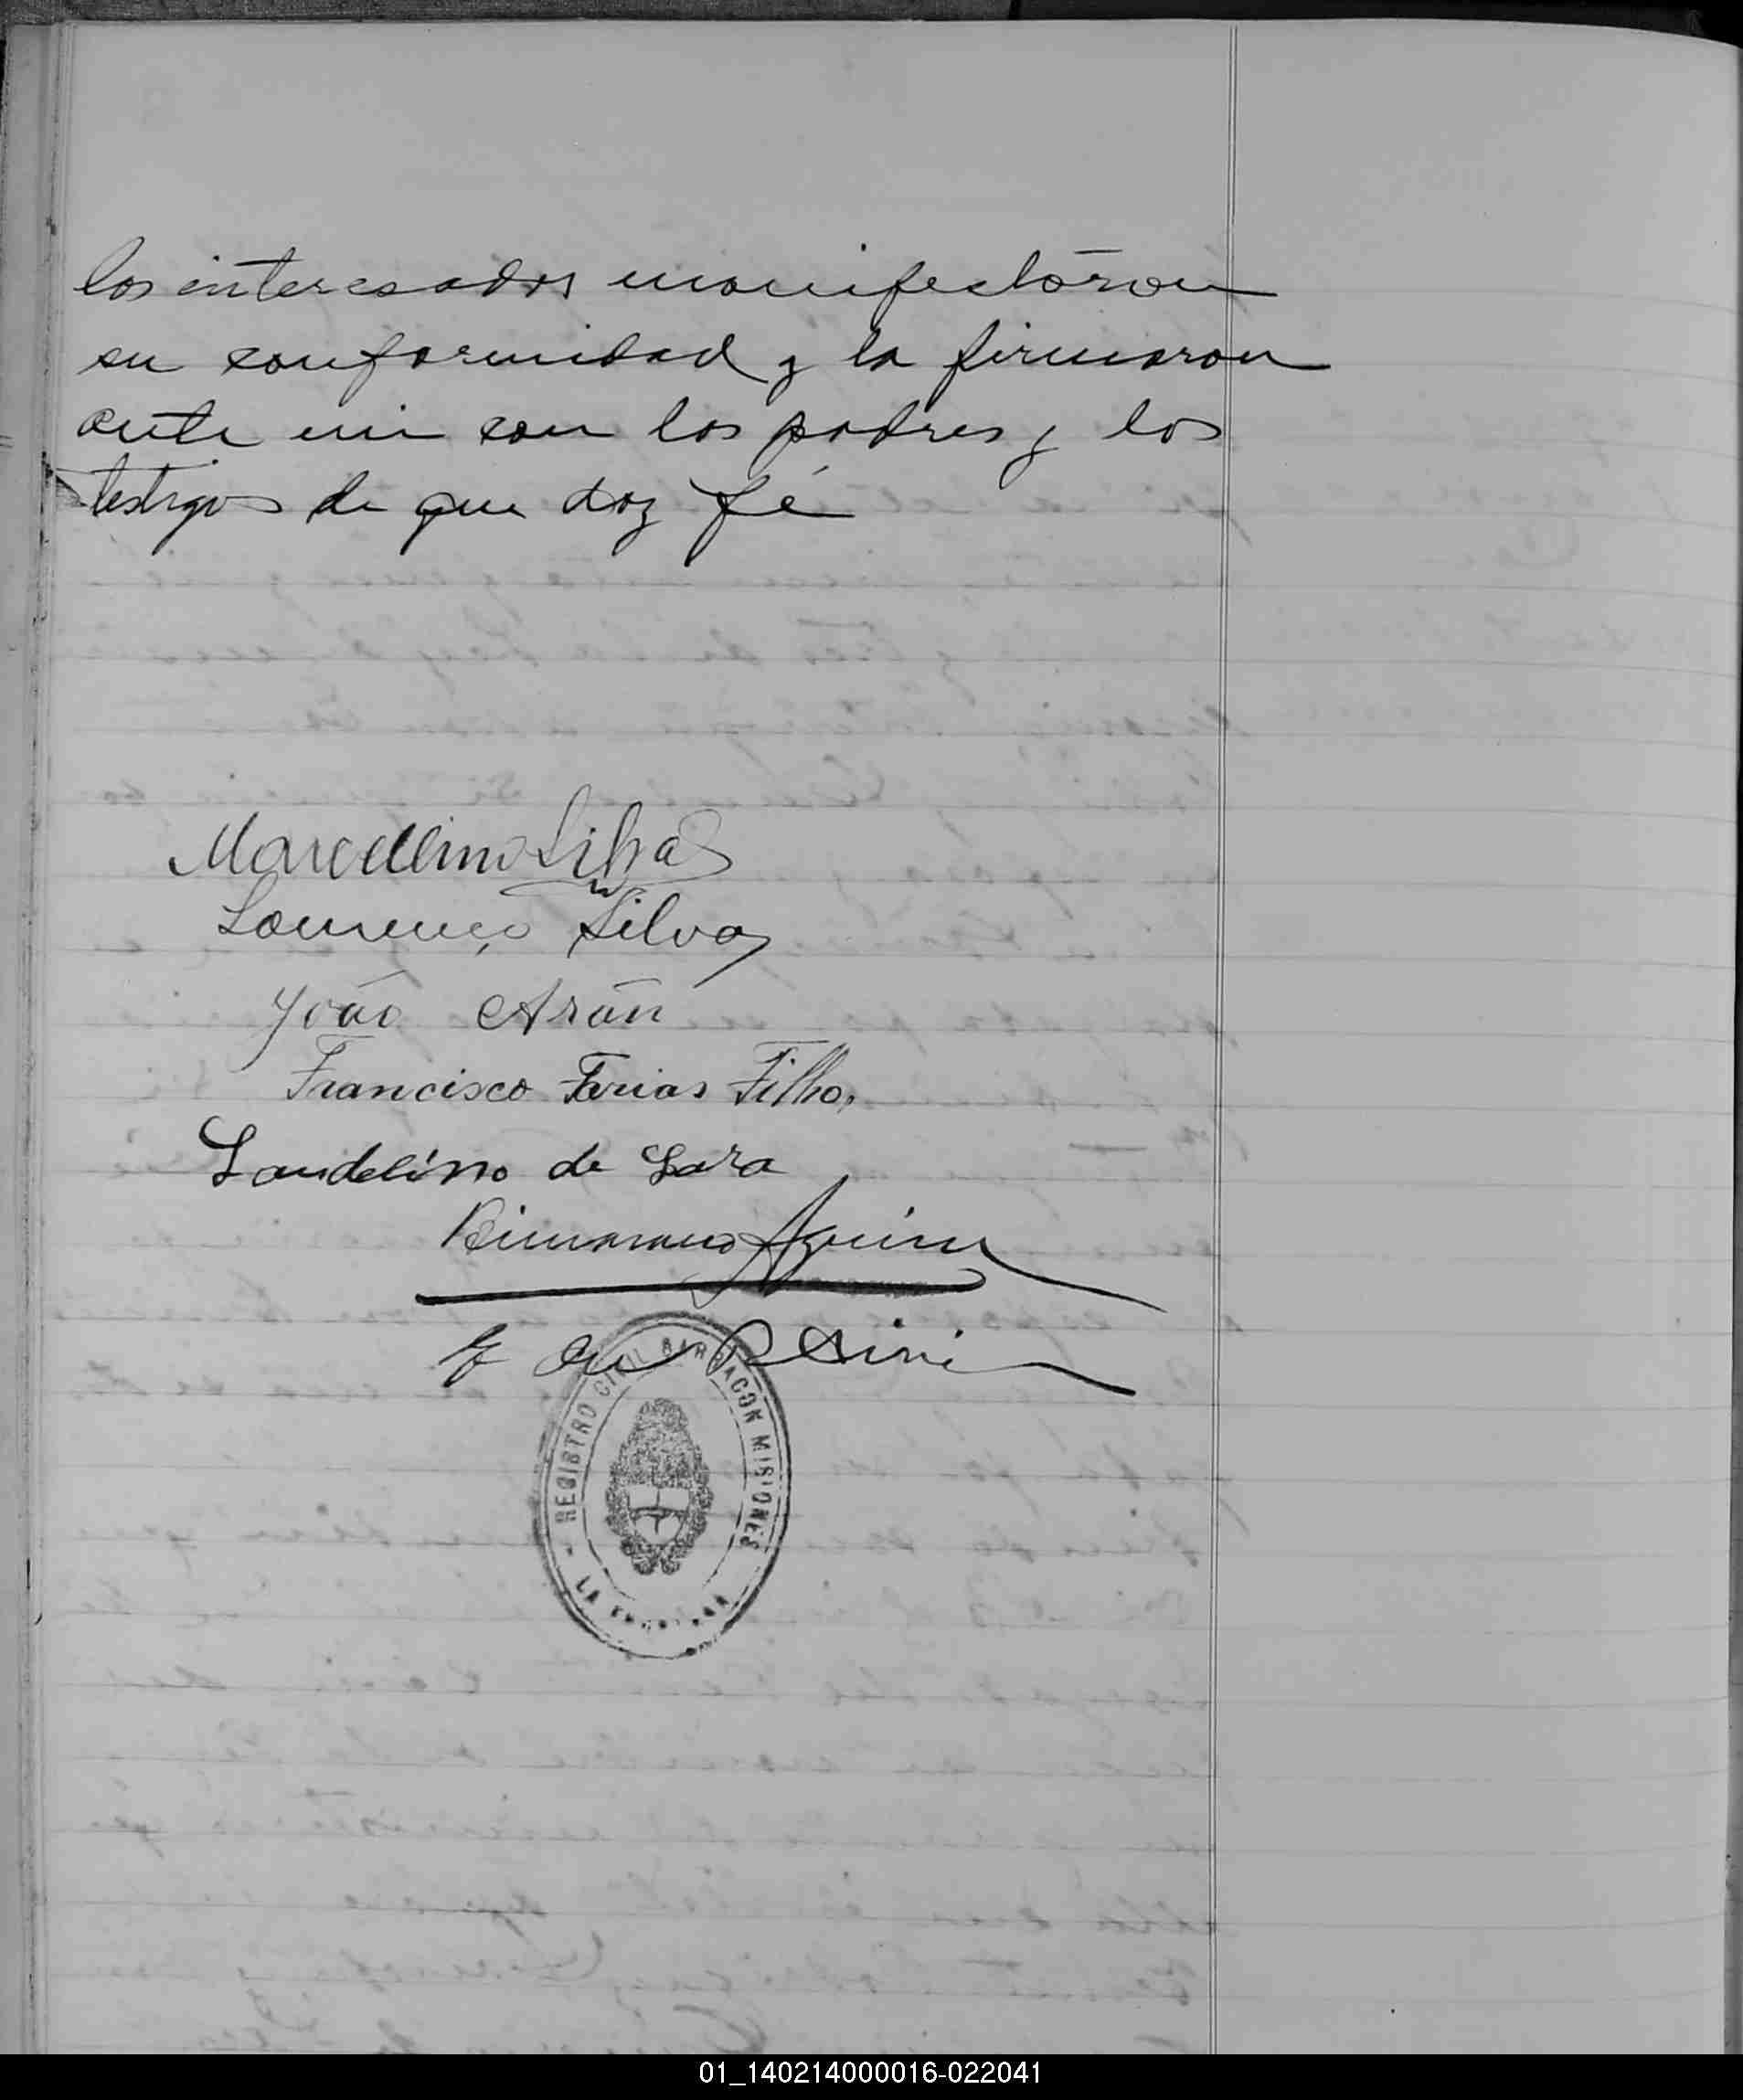 los interesados manifestáron
su conformidad y la firmaron
ante mi con los padres y los
testigos de que doy fé
Marcellino Silva
Lourenço Silva
João Arán
Francisco Farias Filho.
Laudelino de Lara
Aguirre
REGISTRO CIVIL BARRACON MISIONES
LA
01_140214000016-022041